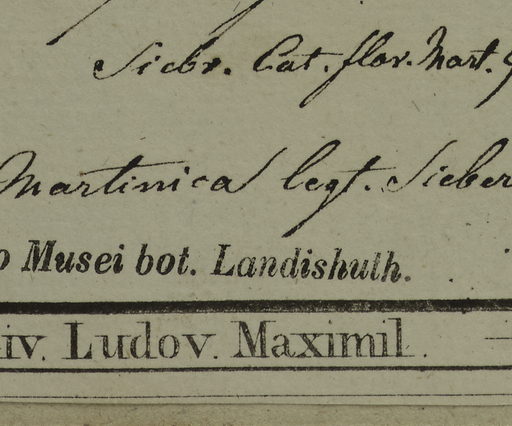 Siebr. Cat. flor. Mart.
Martinica legt. Sieber
o Musei bot. Landishuth.
iv. Ludov. Maximil.